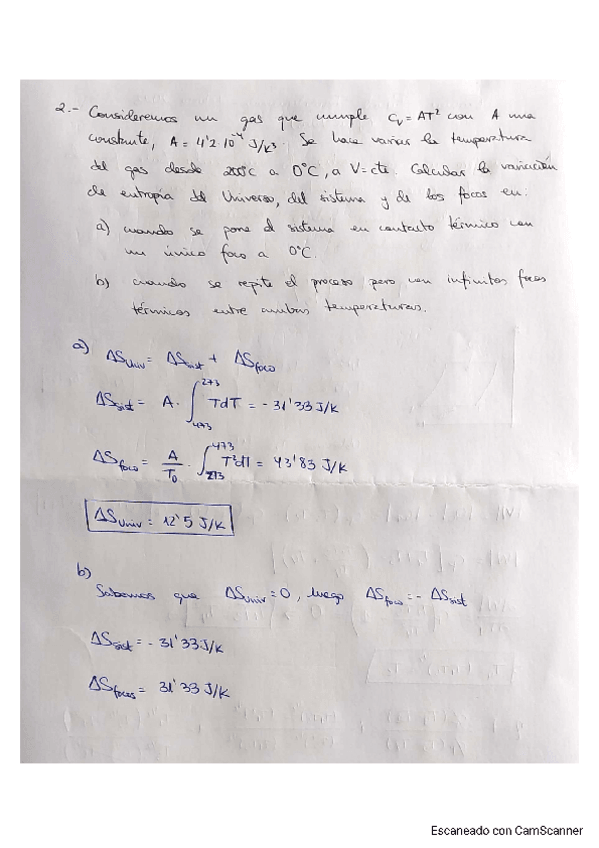 2.- Consideremos un gas que cumple Cv = AT² con A una
constante, A = 4'2·10⁻⁴ J/K³. Se hace variar la temperatura
del gas desde 200°C a 0°C, a V=cte. Calcular la variación
de entropía del Universo, del sistema y de los focos en:
a) cuando se pone el sistema en contacto térmico con
un único foco a 0°C.
b) cuando se repite el proceso pero con infinitos focos
térmicos entre ambas temperaturas.
a) ΔSUniv = ΔSsist + ΔSfoco
ΔSsist = A · ∫₄₇₃²⁷³ TdT = - 31'33 J/K
ΔSfoco = A/T₀ · ∫₂₇₃⁴⁷³ T²dT = 43'83 J/K
ΔSUniv = 12'5 J/K
b)
Sabemos que ΔSUniv = 0, luego ΔSfoco = - ΔSsist
ΔSsist = - 31'33 J/K
ΔSfocos = 31'33 J/K
Escaneado con CamScanner